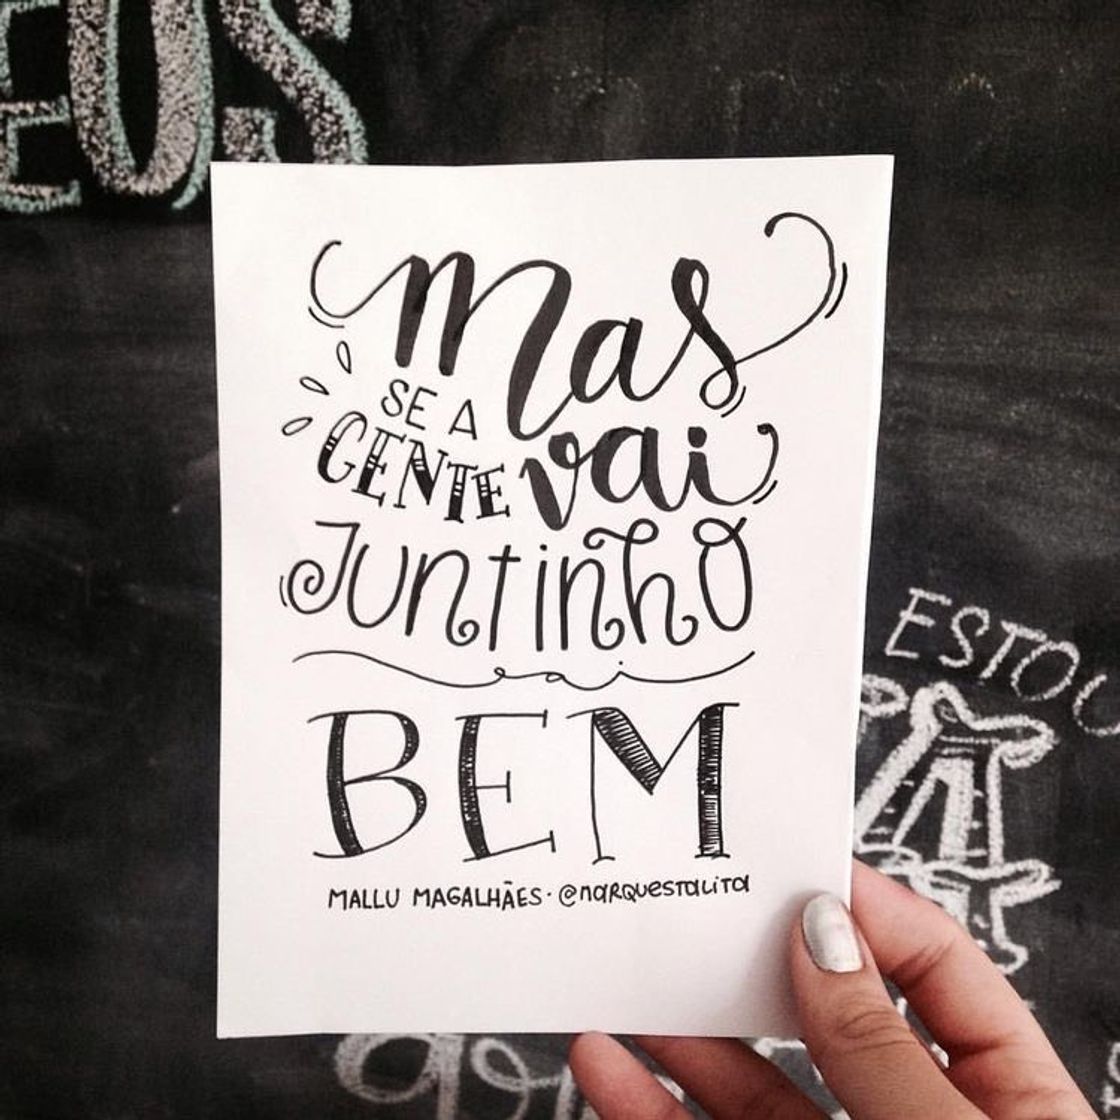 EUS
Mas
SE A
GENTE vai
JUNTINHO
vai
BEM
MALLU MAGALHÃES · @marquestalita
ESTOU